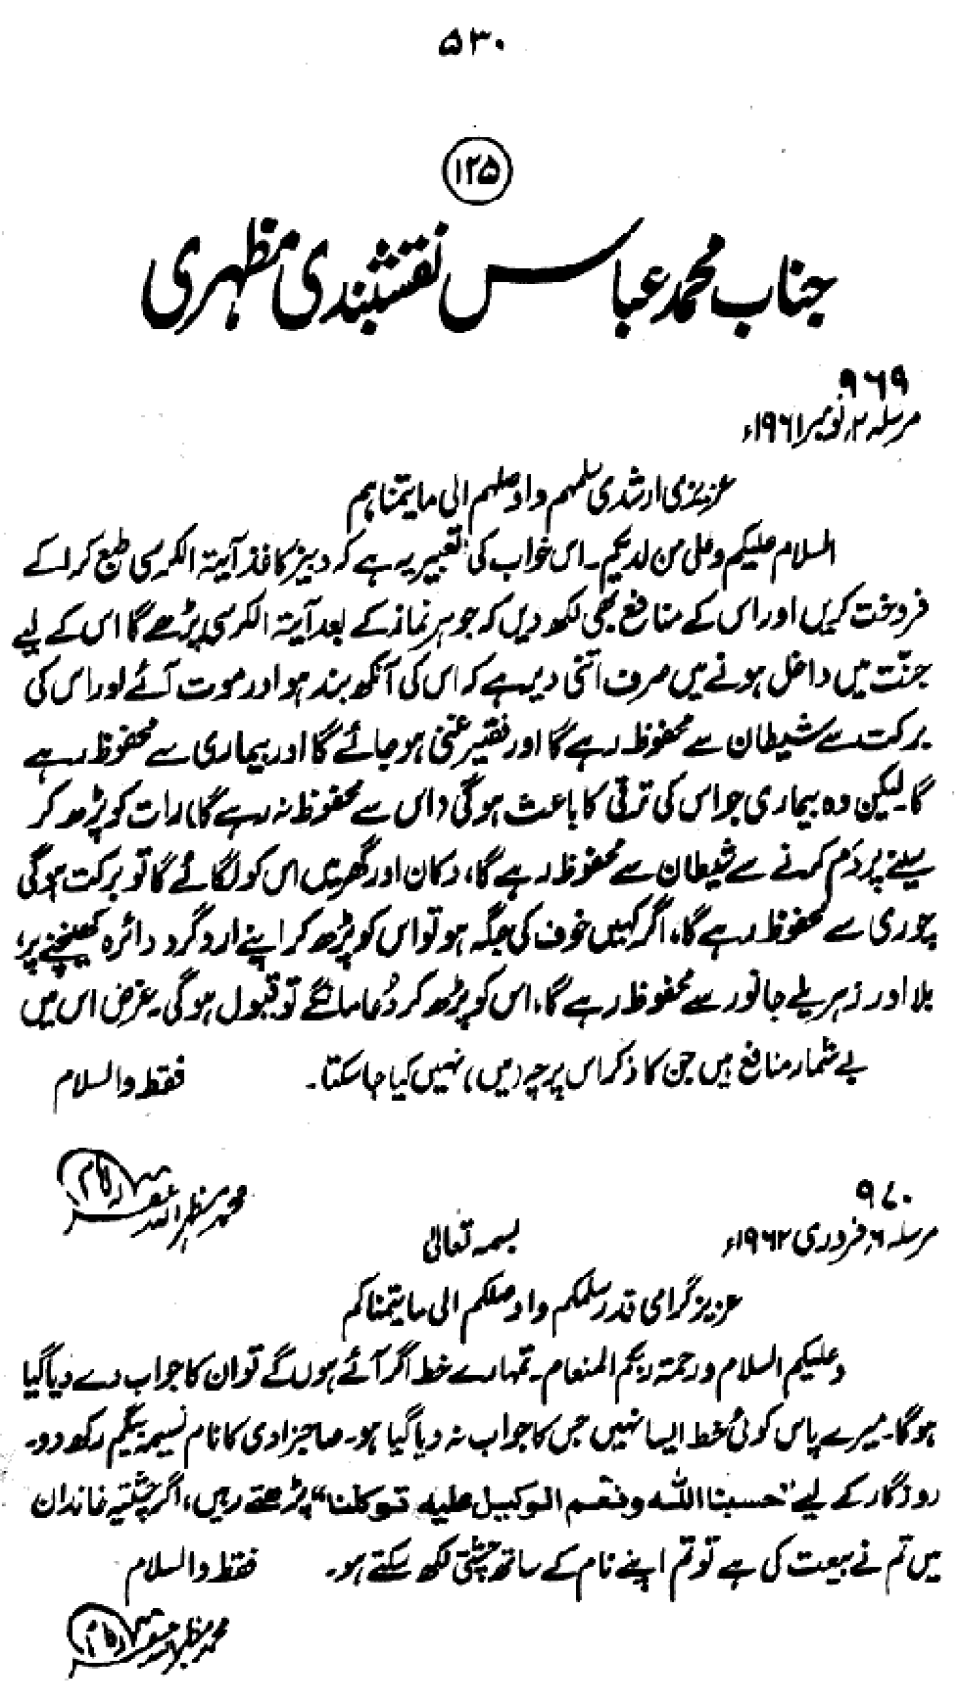 ۵۳۰
۱۲۵
جناب محمد عباس نقشبندی مظہری
۹۶۹
مرسلہ ۲؍ نومبر ۱۹۶۱ء
عزیزی ارشدی سلمہم واوصلہم الی ما یتمناہم
السلام علیکم وعلی من لدیکم۔ اس خواب کی تعبیر یہ ہے کہ دبیز کاغذ آیۃ الکرسی طبع کرا کے
فروخت کریں اور اس کے منافع بھی لکھ دیں کہ جو ہر نماز کے بعد آیۃ الکرسی پڑھے گا اس کے لیے
جنّت میں داخل ہونے میں صرف اتنی دیر ہے کہ اس کی آنکھ بند ہو اور موت آئے اور اس کی
برکت سے شیطان سے محفوظ رہے گا اور فقیر غنی ہو جائے گا اور بیماری سے محفوظ رہے
گا۔ لیکن وہ بیماری جو اس کی ترقی کا باعث ہوگی (اس سے محفوظ نہ رہے گا) رات کو پڑھ کر
سینے پر دَم کرنے سے شیطان سے محفوظ رہے گا، دکان اور گھر میں اس کو لگائے گا تو برکت ہوگی
چوری سے محفوظ رہے گا، اگر کہیں خوف کی جگہ ہو تو اس کو پڑھ کر اپنے ارد گرد دائرہ کھینچنے پر،
بلا اور زہریلے جانور سے محفوظ رہے گا، اس کو پڑھ کر دُعا مانگے تو قبول ہوگی۔ غرض اس میں
بے شمار منافع ہیں جن کا ذکر اس پرچہ (میں) نہیں کیا جا سکتا۔ فقط والسلام
محمد مظہر اللہ غفرلہ
۹۷۰
مرسلہ ۶؍ فروری ۱۹۶۲ء
بسمہ تعالیٰ
عزیز گرامی قدر سلمکم واوصلکم الی ما یتمناکم
وعلیکم السلام ورحمۃ ربکم المنعام۔ تمہارے خط اگر آئے ہوں گے تو ان کا جواب دے دیا گیا
ہوگا۔ میرے پاس کوئی خط ایسا نہیں جس کا جواب نہ دیا گیا ہو۔ صاحبزادی کا نام نسیمہ بیگم رکھ دو۔
روزگار کے لیے "حسبنا اللہ ونعم الوکیل علیہ توکلنا" پڑھتے رہیں، اگر چشتیہ خاندان
میں تم نے بیعت کی ہے تو تم اپنے نام کے ساتھ چشتی لکھ سکتے ہو۔ فقط والسلام
محمد مظہر اللہ غفرلہ